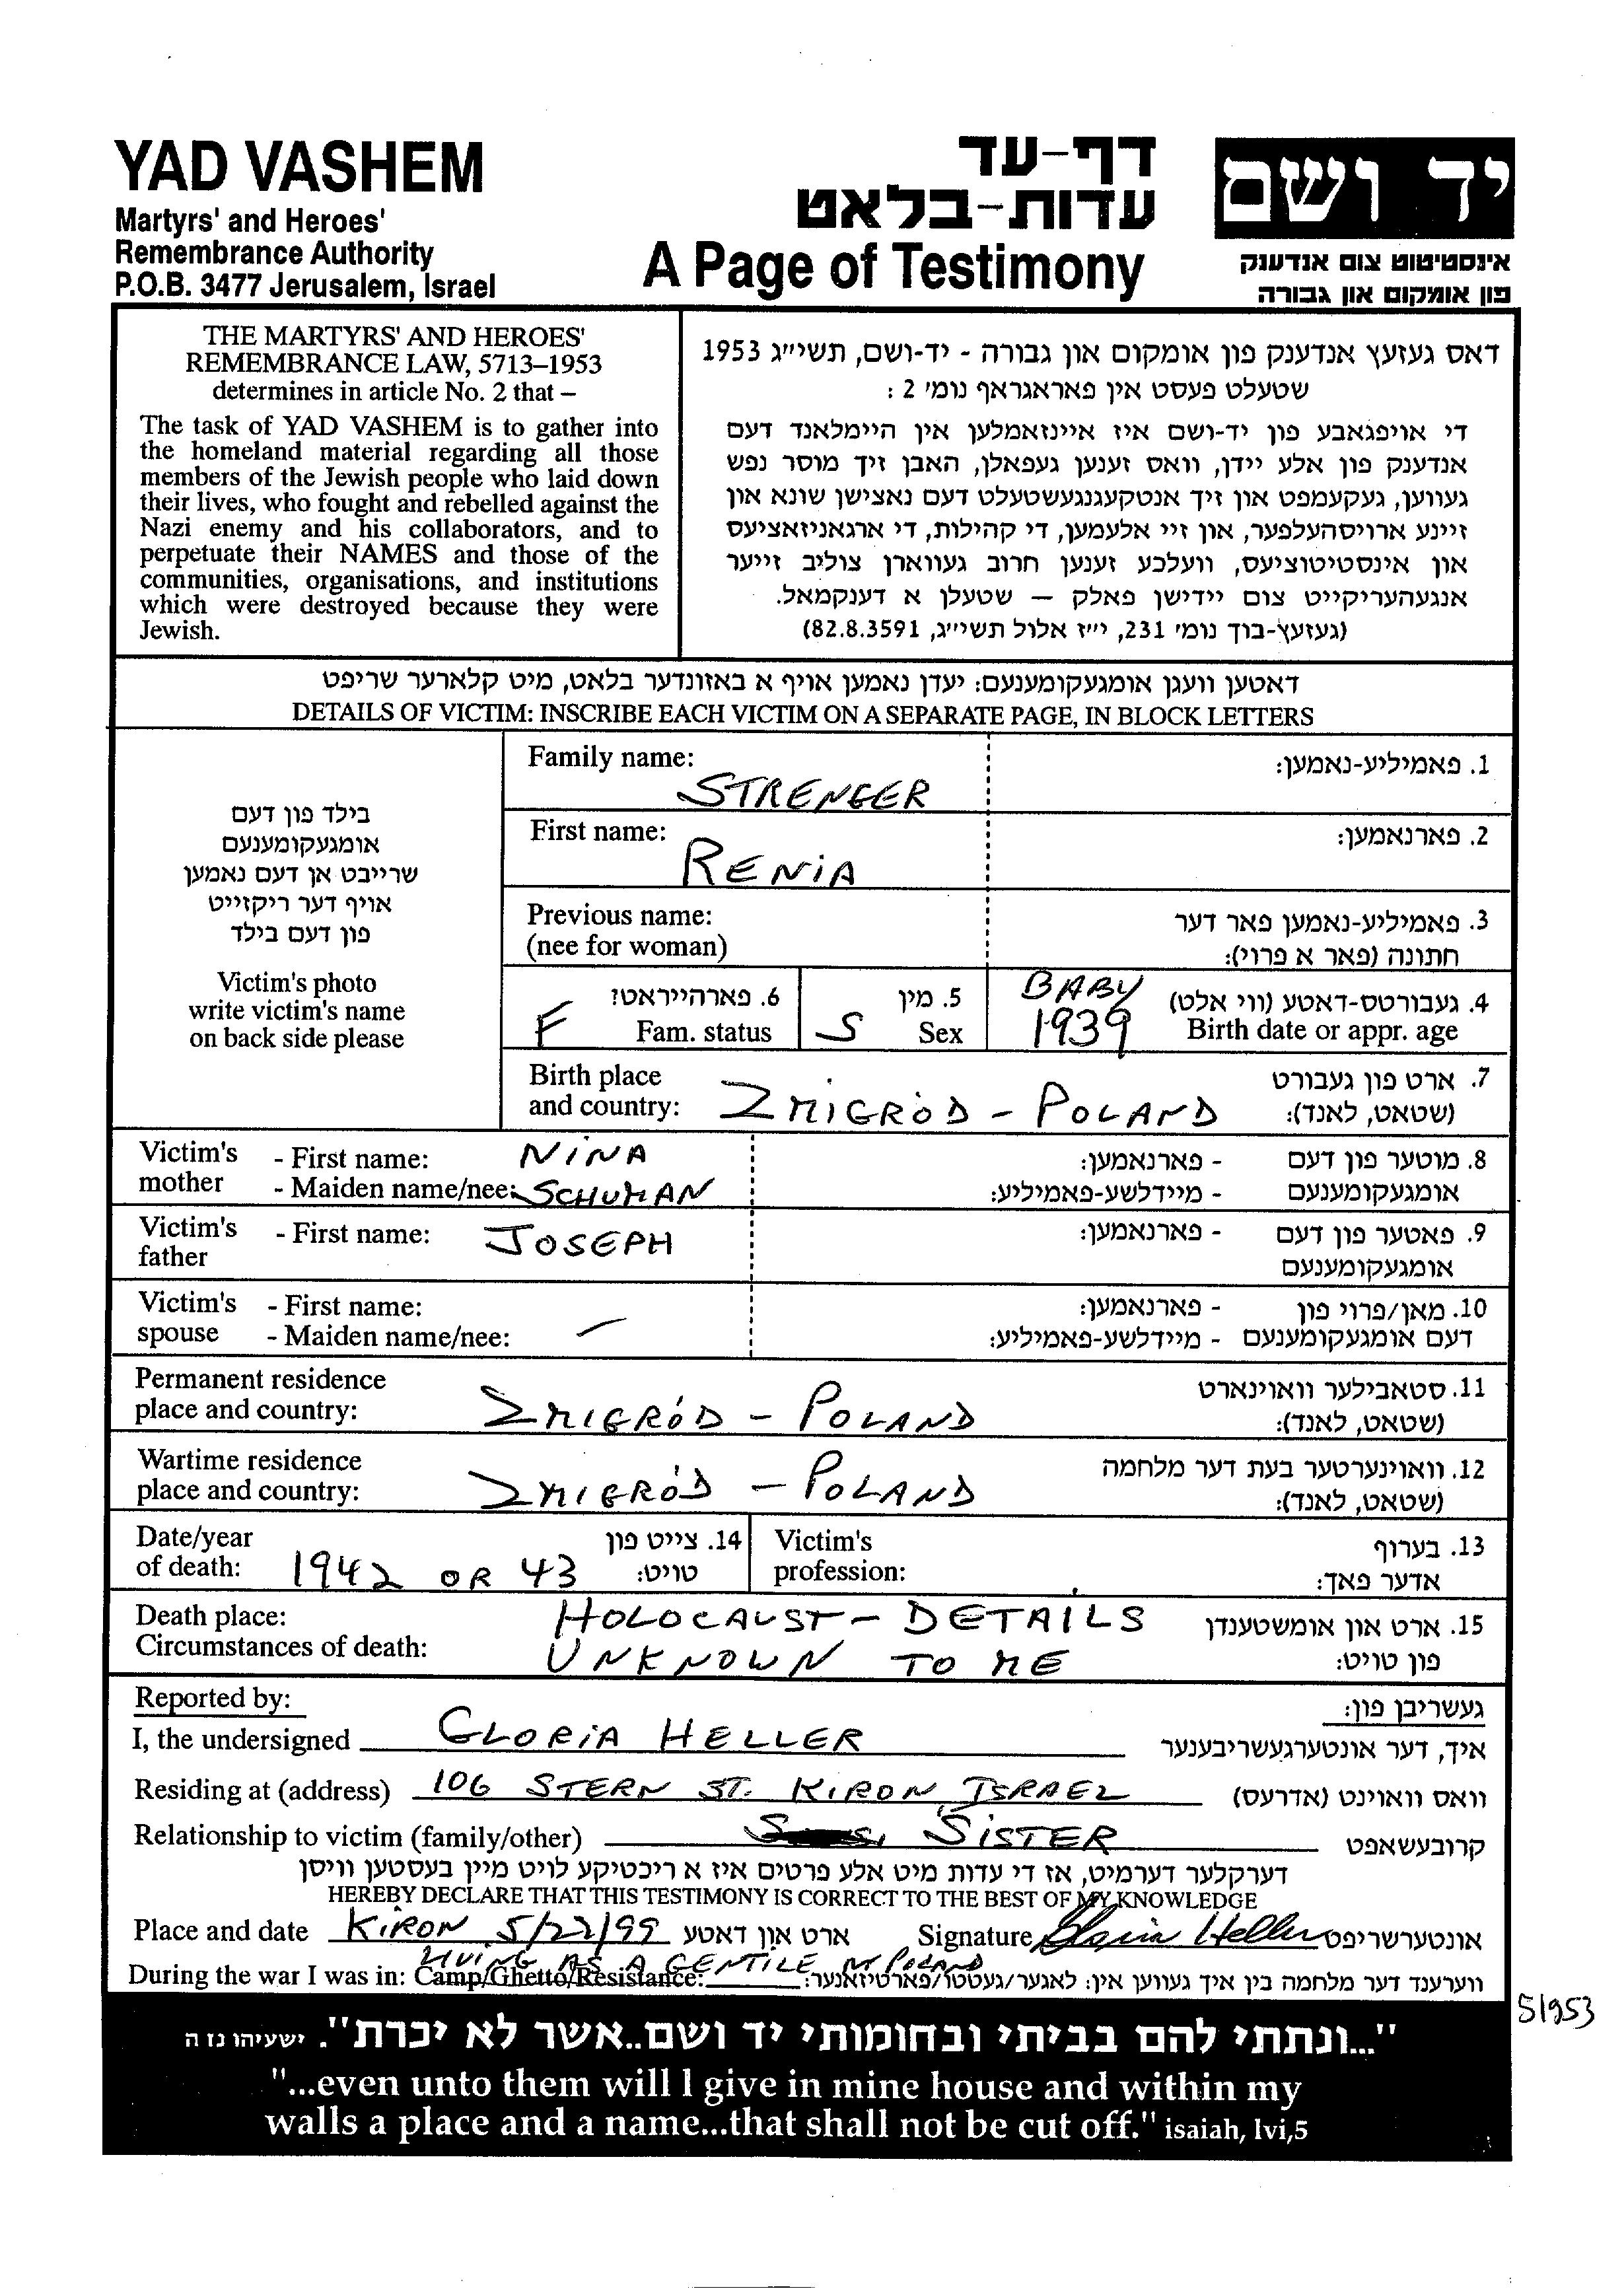 YAD VASHEM
Martyrs' and Heroes'
Remembrance Authority
P.O.B. 3477 Jerusalem, Israel
דף-עד
עדות-בלאט
A Page of Testimony
יד ושם
אינסטיטוט צום אנדענק
פון אומקום און גבורה
THE MARTYRS' AND HEROES'
REMEMBRANCE LAW, 5713–1953
determines in article No. 2 that –
The task of YAD VASHEM is to gather into
the homeland material regarding all those
members of the Jewish people who laid down
their lives, who fought and rebelled against the
Nazi enemy and his collaborators, and to
perpetuate their NAMES and those of the
communities, organisations, and institutions
which were destroyed because they were
Jewish.
דאס געזעץ אנדענק פון אומקום און גבורה - יד-ושם, תשי״ג 1953
שטעלט פעסט אין פאראגראף נומ׳ 2 :
די אויפגאבע פון יד-ושם איז איינזאמלען אין היימלאנד דעם
אנדענק פון אלע יידן, וואס זענען געפאלן, האבן זיך מוסר נפש
געווען, געקעמפט און זיך אנטקעגנגעשטעלט דעם נאצישן שונא און
זיינע ארויסהעלפער, און זיי אלעמען, די קהילות, די ארגאניזאציעס
און אינסטיטוציעס, וועלכע זענען חרוב געווארן צוליב זייער
אנגעהעריקייט צום יידישן פאלק — שטעלן א דענקמאל.
(געזעץ-בוך נומ׳ 231, י״ז אלול תשי״ג, 82.8.3591)
דאטען וועגן אומגעקומענעם: יעדן נאמען אויף א באזונדער בלאט, מיט קלארער שריפט
DETAILS OF VICTIM: INSCRIBE EACH VICTIM ON A SEPARATE PAGE, IN BLOCK LETTERS
בילד פון דעם
אומגעקומענעם
שרייבט אן דעם נאמען
אויף דער ריקזייט
פון דעם בילד
Victim's photo
write victim's name
on back side please
Family name: STRENGER 1. פאמיליע-נאמען:
First name: RENIA 2. פארנאמען:
Previous name: 3. פאמיליע-נאמען פאר דער
(nee for woman) חתונה (פאר א פרוי):
F 6. פארהייראט? S 5. מין BABY 4. געבורטס-דאטע (ווי אלט)
Fam. status Sex 1939 Birth date or appr. age
Birth place 7. ארט פון געבורט
and country: ZMIGRÓD - POLAND (שטאט, לאנד):
Victim's - First name: NINA - פארנאמען: 8. מוטער פון דעם
mother - Maiden name/nee: SCHUMAN - מיידלשע-פאמיליע: אומגעקומענעם
Victim's - First name: JOSEPH - פארנאמען: 9. פאטער פון דעם
father אומגעקומענעם
Victim's - First name: - פארנאמען: 10. מאן/פרוי פון
spouse - Maiden name/nee: — - מיידלשע-פאמיליע: דעם אומגעקומענעם
Permanent residence 11. סטאבילער וואוינארט
place and country: ZMIGRÓD - POLAND (שטאט, לאנד):
Wartime residence 12. וואוינערטער בעת דער מלחמה
place and country: ZMIGRÓD - POLAND (שטאט, לאנד):
Date/year 14. צייט פון Victim's 13. בערוף
of death: 1942 OR 43 טויט: profession: אדער פאך:
Death place: HOLOCAUST - DETAILS 15. ארט און אומשטענדן
Circumstances of death: UNKNOWN TO ME פון טויט:
Reported by: געשריבן פון:
I, the undersigned GLORIA HELLER איך, דער אונטערגעשריבענער
Residing at (address) 106 STERN ST. KIRON ISRAEL וואס וואוינט (אדרעס)
Relationship to victim (family/other) SISTER קרובעשאפט
דערקלער דערמיט, אז די עדות מיט אלע פרטים איז א ריכטיקע לויט מיין בעסטען וויסן
HEREBY DECLARE THAT THIS TESTIMONY IS CORRECT TO THE BEST OF MY KNOWLEDGE
Place and date KIRON 5/22/99 ארט און דאטע Signature Gloria Heller אונטערשריפט
LIVING AS A GENTILE IN POLAND
During the war I was in: Camp/Ghetto/Resistance: ווערענד דער מלחמה בין איך געווען אין: לאגער/געטטו/פארטיזאנער:
51953
"...ונתתי להם בביתי ובחומותי יד ושם..אשר לא יכרת". ישעיהו נז ה
"...even unto them will I give in mine house and within my
walls a place and a name...that shall not be cut off." isaiah, lvi,5